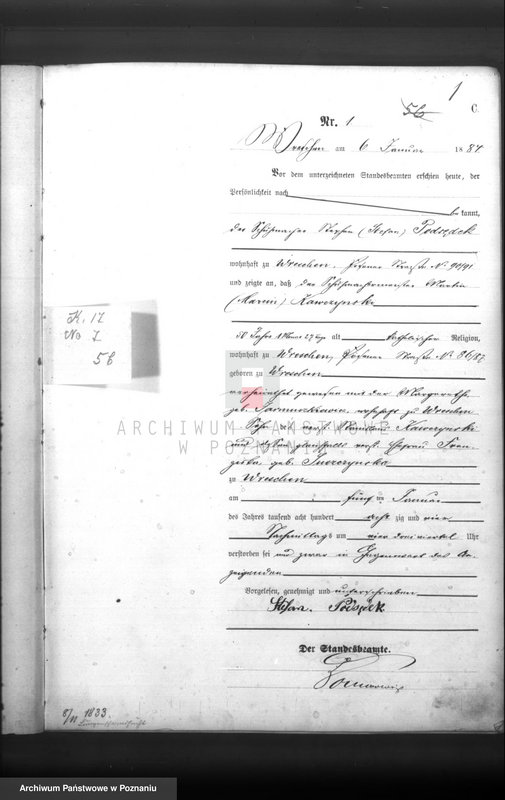 1
56
C.
Nr. 1
Wreschen am 6 Januar 1884
Vor dem unterzeichneten Standesbeamten erschien heute, der
Persönlichkeit nach
be kannt,
der Schuhmacher Stephan (Stefan) Podsędek
wohnhaft zu Wreschen, Posener Straße No 90/91
und zeigte an, daß der Schuhmachermeister Martin
(Marcin) Kawczynski
50 Jahre 2 Mon. 27 Tge alt katholischer Religion,
wohnhaft zu Wreschen, Posener Straße No 86/87
geboren zu Wreschen
verheirathet gewesen mit der Margaretha
geb. wohnhaft zu Wreschen
Sohn des verst. Stanislaus Kawczynski
und dessen gleichfalls verst. Ehefrau Fran-
ziska, geb.
zu Wreschen
am fünf ten Januar
des Jahres tausend acht hundert acht zig und vier
Nachmittags um vier dreiviertel Uhr
verstorben sei und zwar in Gegenwart des An-
zeigenden
Vorgelesen, genehmigt und unterschrieben
Stefan Podsędek
Der Standesbeamte.
K. 17
No 1
56
ARCHIWUM PAŃSTWOWE
W POZNANIU
8/11 1833.
Archiwum Państwowe w Poznaniu